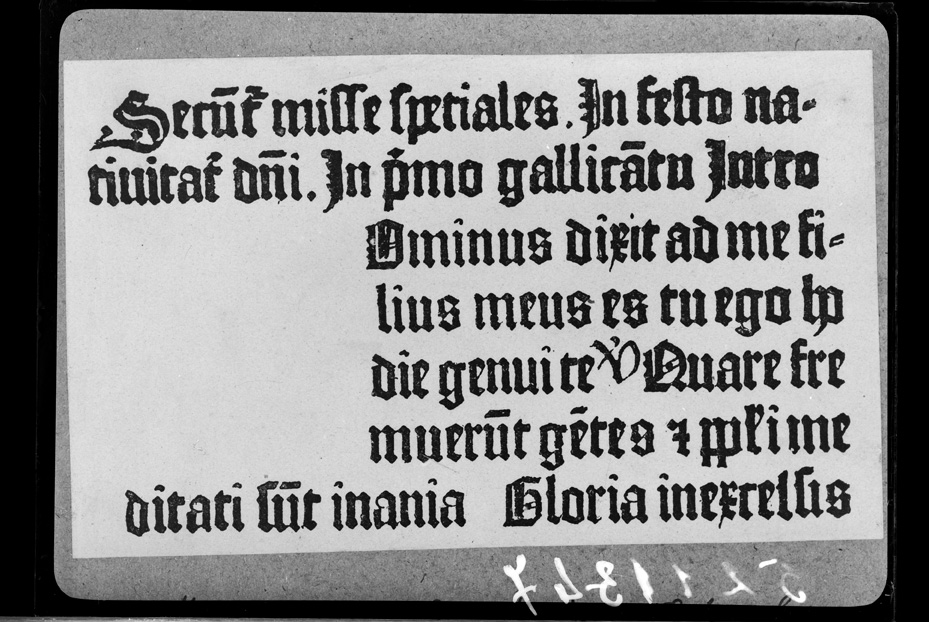 Secūt᷑ misse speciales. In festo na-
tiuitat᷑ dn̄i. In p̄mo gallicātu Intro
Ominus dixit ad me fi-
lius meus es tu ego ho
die genui te ℣ Quare fre
muerūt gētes ⁊ ppl̄i me
ditati sūt inania Gloria inexcelsis